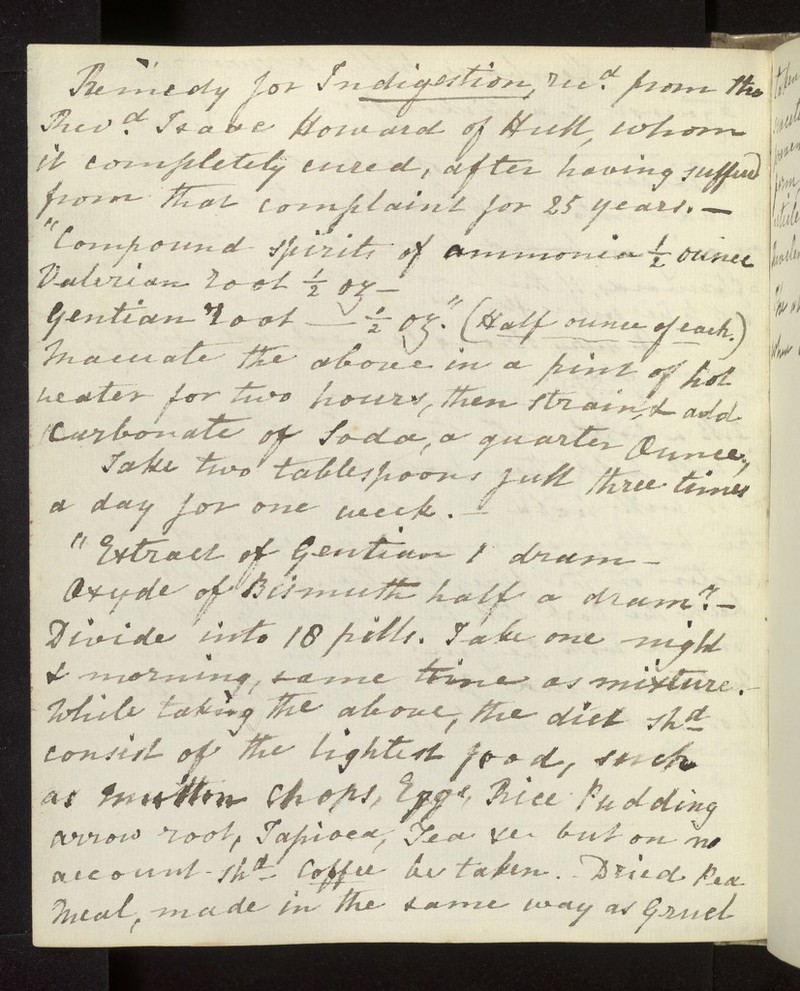 Remedy for Indigestion, recd. from the
Revd. Isaac Howard of Hull, whom
it completely cured, after having suffered
from that complaint for 25 years. —
"Compound spirits of ammonia ½ ounce
Valerian root ½ oz —
Gentian root — ½ oz." (Half ounce of each.)
Macerate the above in a pint of hot
water for two hours, then strain, & add
Carbonate of Soda, a quarter Ounce,
Take two tablespoons full three times
a day for one week. —
"Extract of Gentian 1 dram —
Oxyde of Bismuth half a dram" —
Divide into 18 pills. Take one night
& morning, same time as mixture. —
While taking the above, the diet shd
consist of the lightest food, such
as mutton Chops, Eggs, Rice Pudding
arrow root, Tapioca, Tea &c. but on no
account shd Coffee be taken. Dried Pea
Meal, made in the same way as Gruel